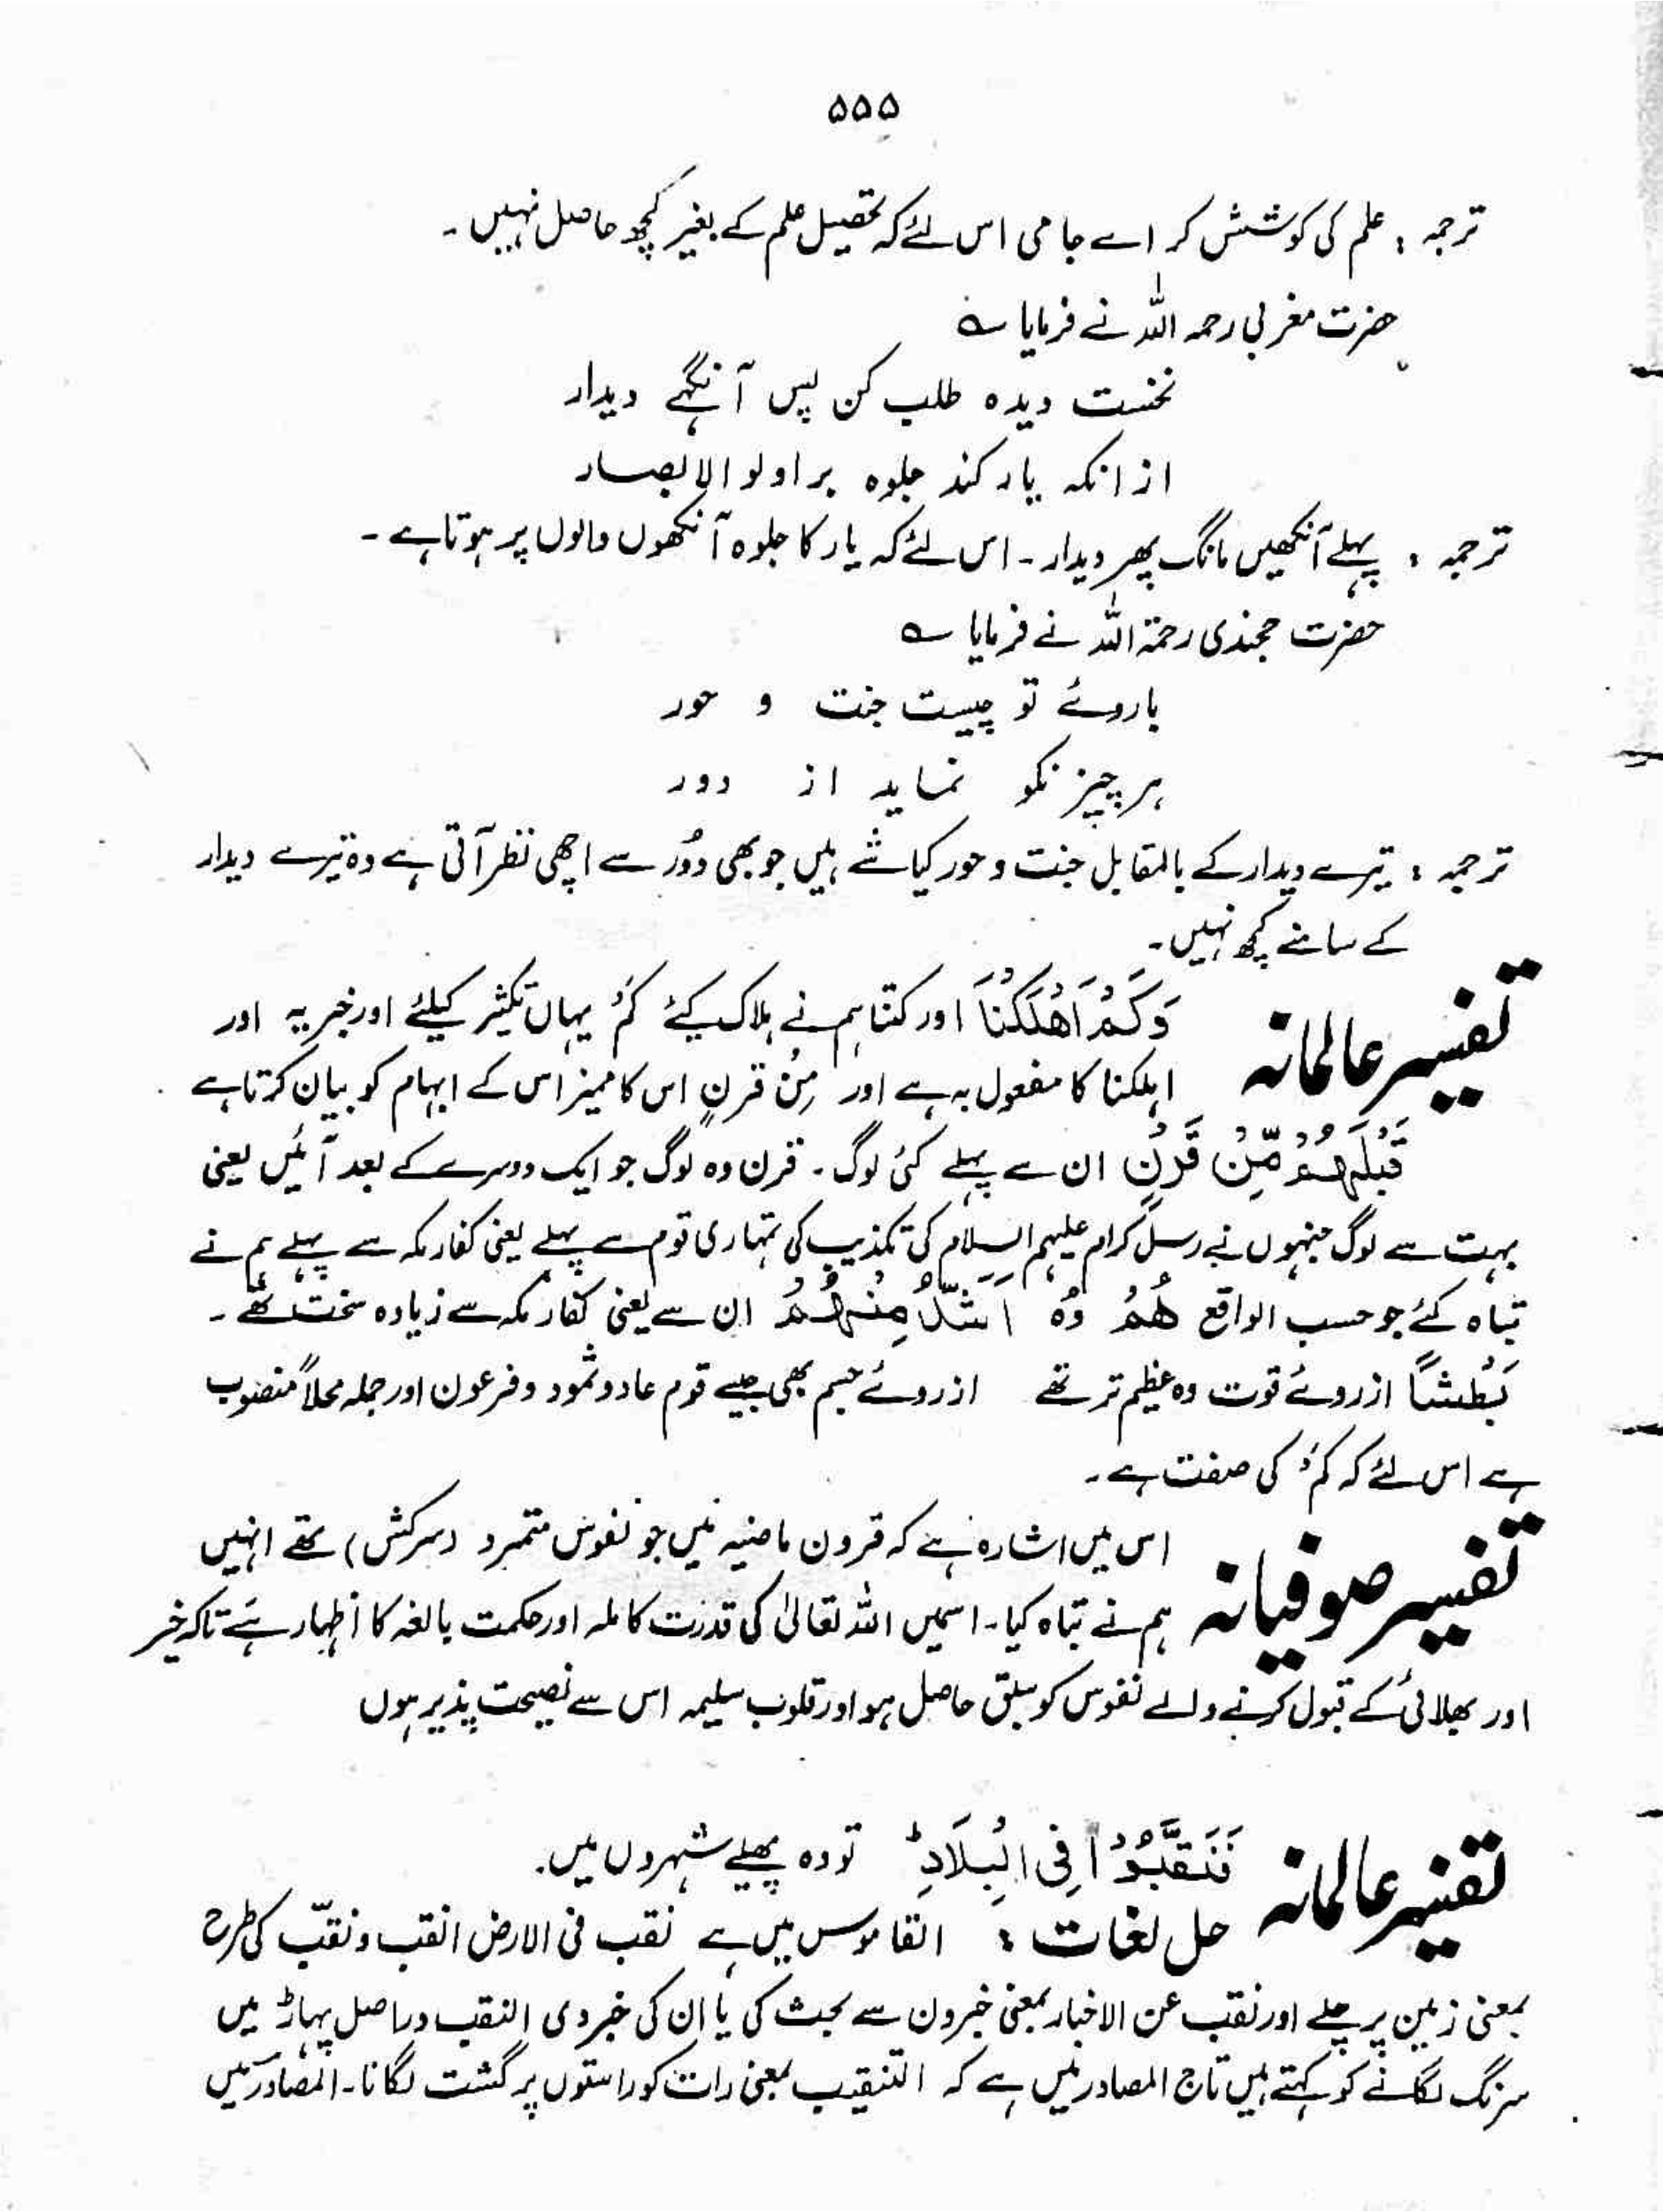 ۵۵۵
ترجمہ : علم کی کوشش کر اے جامی اس لئے کہ تحصیل علم کے بغیر کچھ حاصل نہیں ۔
حضرت مغربی رحمہ اللہ نے فرمایا ؎
نخست دیدہ طلب کن پس آنگہے دیدار
از انکہ یار کند جلوہ بر اولو الابصار
ترجمہ : پہلے آنکھیں مانگ پھر دیدار ۔ اس لئے کہ یار کا جلوہ آنکھوں والوں پر ہوتا ہے ۔
حضرت خجندی رحمۃ اللہ نے فرمایا ؎
باروئے تو چیست جنت و حور
ہر چیز نکو نماید از دور
ترجمہ : تیرے دیدار کے بالمقابل جنت و حور کیا شے ہیں جو بھی دُور سے اچھی نظر آتی ہے وہ تیرے دیدار
کے سامنے کچھ نہیں ۔
تفسیر عالمانہ وَكَمْ اَهْلَكْنَا اور کتنا ہم نے ہلاک کیے کم یہاں تکثیر کیلئے اور خبریہ اور
اہلکنا کا مفعول بہ ہے اور مِنْ قرنٍ اس کا ممیز اس کے ابہام کو بیان کرتا ہے ۔
قَبْلَهُمْ مِّنْ قَرْنٍ ان سے پہلے کئی لوگ ۔ قرن وہ لوگ جو ایک دوسرے کے بعد آئیں یعنی
بہت سے لوگ جنہوں نے رسل کرام علیہم السلام کی تکذیب کی تمہاری قوم سے پہلے یعنی کفار مکہ سے پہلے ہم نے
تباہ کئے جو حسب الواقع هُمْ وُہ اَشَدُّ مِنْهُمْ ان سے یعنی کفار مکہ سے زیادہ سخت تھے ۔
بَطْشًا ازروئے قوت وہ عظیم تر تھے ازروئے جسم بھی جیسے قوم عاد و ثمود و فرعون اور جملہ محلاً منصوب
ہے اس لئے کہ کم کی صفت ہے ۔
تفسیر صوفیانہ اس میں اشارہ ہے کہ قرون ماضیہ میں جو نفوس متمرد (سرکش) تھے انہیں
ہم نے تباہ کیا ۔ اسمیں اللہ تعالیٰ کی قدرت کاملہ اور حکمت بالغہ کا اظہار ہے تاکہ خیر
اور بھلائی کے قبول کرنے والے نفوس کو سبق حاصل ہو اور قلوب سلیمہ اس سے نصیحت پذیر ہوں
تفسیر عالمانہ فَنَقَّبُوْا فِی الْبِلَادِ ؕ تو وہ پھیلے شہروں میں ۔
حل لغات : القاموس میں ہے نقب فی الارض انقب و نقّب کی طرح
بمعنی زمین پر چلے اور نقب عن الاخبار بمعنی خبرون سے بحث کی یا ان کی خبر دی النقب دراصل پہاڑ میں
سرنگ لگانے کو کہتے ہیں تاج المصادر میں ہے کہ التنقیب بمعنی رات کو راستوں پر گشت لگانا ۔ المصادر میں